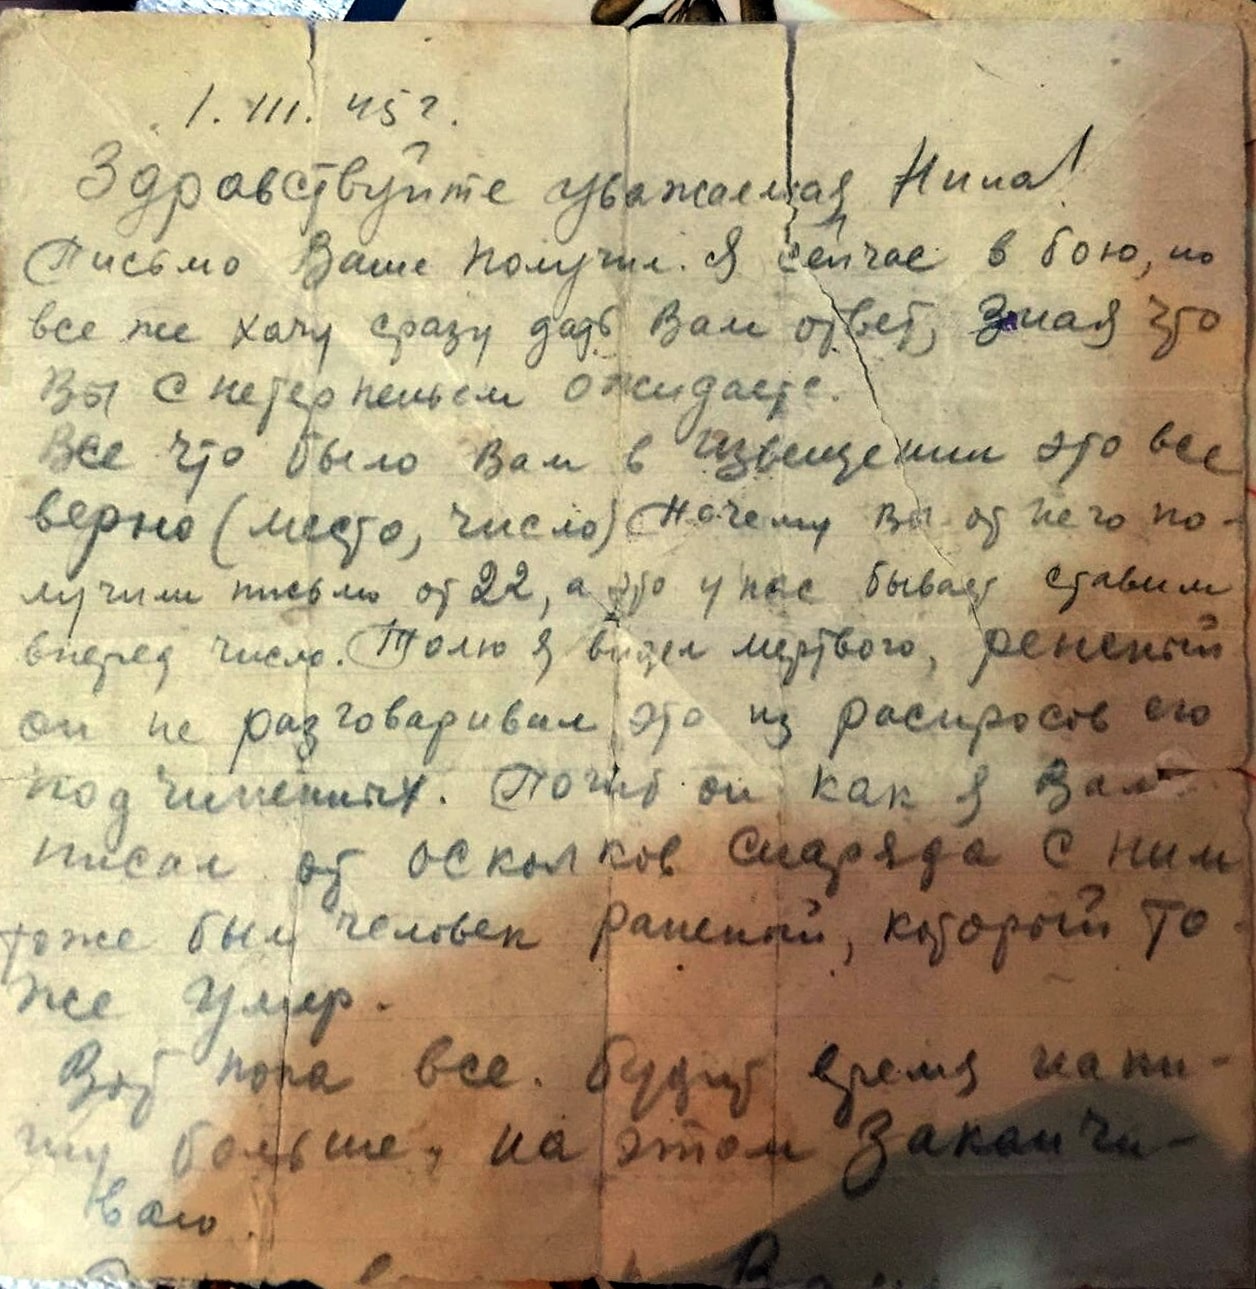 1. III. 45 г.
Здравствуйте уважаемая Нина!
Письмо Ваше получил. Я сейчас в бою, но
все же хочу сразу дать Вам ответ, Зная что
Вы с нетерпеньем ожидаете.
Все что было Вам в извещении это все
верно (место, число) Почему Вы от него по-
лучили письмо от 22, а это у нас бывает ставим
вперед число. Толю я видел мертвого, ренений
он не разговаривал это из распросов его
подчиненных. Погиб он как я Вам
писал от осколков снаряда с ним
тоже был человек раненый, который то-
же умер.
Вот пока все. будит время напи-
шу больше, на этом Заканчи-
ваю.